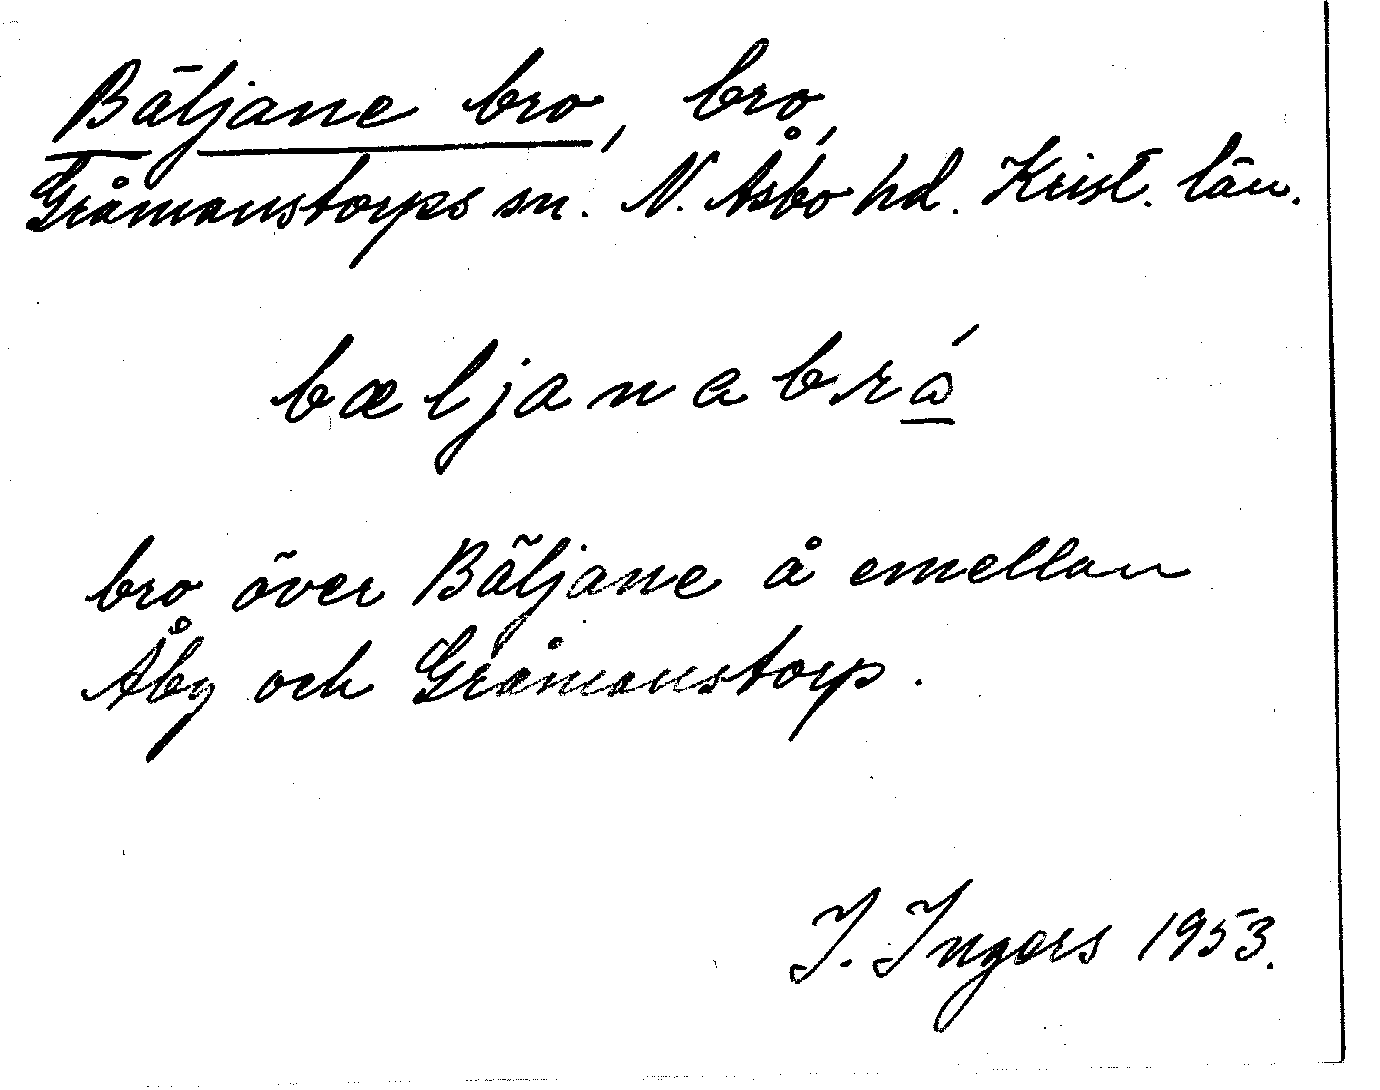 Bäljane bro, bro,
Gråmanstorps sn. N. Åsbo hd. Krist. län.
bæljanabrǻ
bro över Bäljane å emellan
Åby och Gråmanstorp.
I. Ingers 1953.